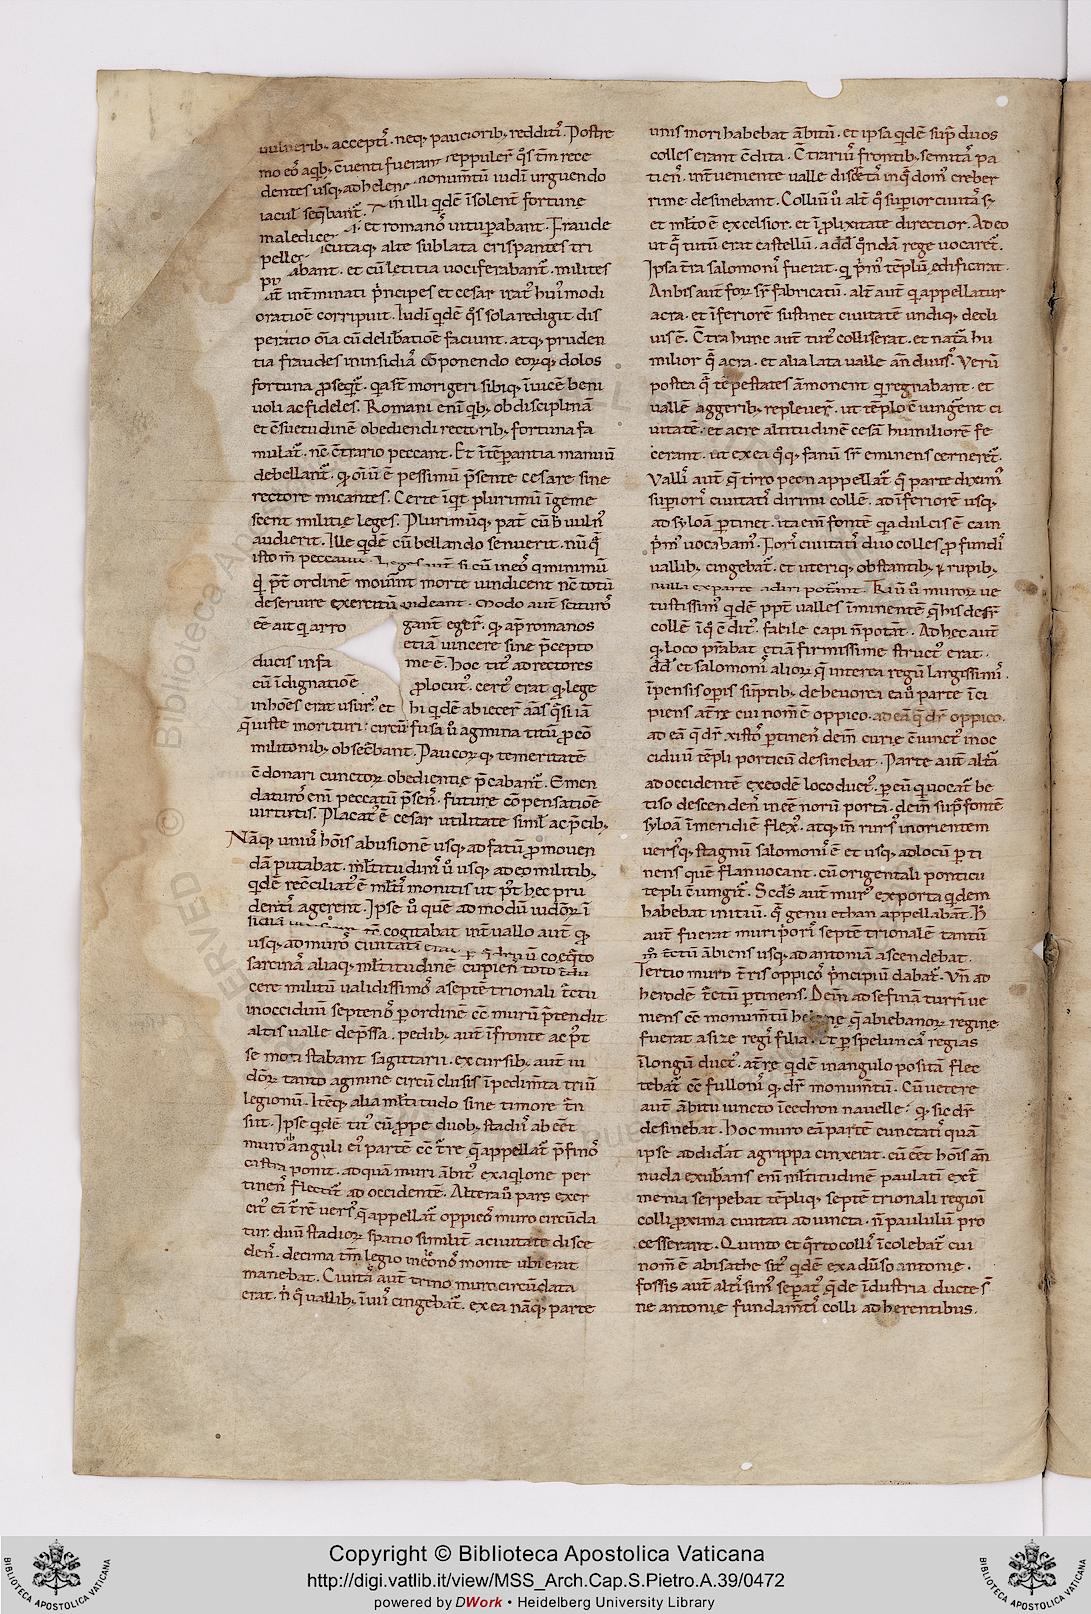 uulnerib; acceptı̄. neq; paucıorib; redditı̄. Postre
mo eō aqb; ēuenti fuerant reppuler̄ qs tm̄ rece
dentes usq; ad helene monum̄tū iudı̄ urguendo
iacul seq̄bant̄. illi qdē īsolent̄ fortune
et romanō uitupabant. Fraude
alte sublata crispantes tri
abant. et cū letitia uociferabant̄. milites
int̄minati p̄ncipes et cesar irat᷒ hui᷒modi
oratione corripuit. Iudı̄ qdē qs sola redigit dis
peratio oīa cū delib̄atione faciunt. atq; pruden
tia fraudes in insidiā cōponendo eorq; dolos
fortuna p̄seqt̄. qa st̄ morigeri sibiq; īuicē beni
uoli ac fideles. Romani enı̄ qb; ob disciplinā
et c̄suetudinē obediendi rectorib; fortuna fa
mulat̄. nc̄ c̄trario peccant. Et īt̄pantia manuū
debellant̄. qd oı̄ū ē pessimū p̄sente cesare sine
rectore micantes. Certe īqt plurimū īgeme
scent militie leges. Plurimūq; pat̄ cū h̄ uuln᷒
audierit. Ille qdē cū bellando senuerit. nūq̄
isto m̄ peccauit. Leges aut̄ si cū in eo q minimū
q p̄t ordinē mouūnt morte uindicent nc̄ totū
deseruire exercitū uideant. Modo aut̄ scituro
ee ait q arro gant̄ eger̄. qd ap̄ romanos
etiā uincere sine p̄cepto
ducis infa me ē. hoc tit᷒ ad rectores
cū īdignatiōe plocut᷒. cert᷒ erat qd lege
in hōes erat usur᷒. et hi qdē abiecer̄ aı̄as qsi iā
q̄ iuste morituri. circū fusa ū agmina titū p cō
militonib; obsec̄bant. Paucor q; temeritatē
c̄donari cunctor obedientie p̄cabant̄. Emen
daturō enı̄ peccatū p̄sen. future cōpensatiōe
uirtutis. Placat᷒ ē cesar utilitate simł ac p̄cib;
Nāq; uniu᷒ hōis abusionē usq; ad fatū pmouen
dā putabat. młtitudin᷒ ū usq; adeo militib;
qdē rec̄ciliat᷒ ē młtı̄ monitis ut p̄t hec pru
dentı̄ agerent. Ipse ū que ad modū iudōr ī
sidiā cogitabat int̄ uallo aut̄ qr
usq; ad murō ciuitatā
sarcinā aliaq; młtitudinē cupien̄ toto
cere militū ualidissimō a septētrionali t̄ctu
in occidiuū septenō pordinē cc̄ murū p̄tendit
altis ualle dep̄ssa. pedib; aut̄ ī fronte ac p̄t
se mori stabant sagittarii. excursib; aut̄ iu
dōr tanto agmine circū clusis īpedim̄ta triū
legionū. It̄q; alia młtitudo sine timore t̄n
siit. Ipse qdē tit᷒ cū ppe duob; stadiı̄ ab eēt
murō anguli ei᷒ partē cc̄ t̄re q̄ appellat̄ p̄finō
castra ponit. ad quā muri ābit᷒ ex aqlone per
tinen̄ flectit̄ ad occidentē. Altera ū pars exer
cit᷒ eā t̄rē uers᷒ q̄ appellat̄ oppicō muro circūda
tur. duū stadior spatio similit̄ a ciuitate disce
den̄. decima tm̄ legio in eonō monte ubi erat
manebat. Ciuitā aut̄ trino muro circūdata
erat. n̄ q̄ uallib; īuiı̄ cingebat̄. ex ea nāq; parte
unis mori habebat ābitū. et ipsa qdē sup̄ duos
colles erant c̄dita. C̄trariū frontib; semitā pa
tien̄. int̄ueniente ualle discretā in q̄ dom᷒ creber
rime desinebant. Colliū ū alt̄ q supior ciuitā st̄
et młto ē excelsior. et ī plixitate directior. Adeo
ut q̄ tutū erat castellū. a dd̄ qndā rege uocaret̄.
Ipsa t̄ra salomonı̄ fuerat. q p̄m᷒ tēplū edificarat.
An bis aut̄ for st̄ fabricatū. alt̄ aut̄ q appellatur
acra. et īferiorē sustinet ciuitatē undiq; decli
uis ē. C̄tra hunc aut̄ tur᷒ collis erat. et natā hu
milior q̄ acra. et alia lata ualle añ diuis᷒. Verū
postea q̄ tēpestates āmonent q regnabant. et
uallē aggerib; repleuer̄. ut tēplo ē iungrent ci
uitatē. et acre altitudinē cesā humiliorē fe
cerant. ut ex ea qq; fanū st̄ eminens cerneret̄.
Vallı̄ aut̄ q̄ tiro peon appellat̄ q̄ parte dixim᷒
supiorı̄ ciuitatı̄ dirimi collē. ad īferiorē usq;
ad syloā ptinet. ita em̄ fontē qa dulcis ē ca in
p̄m᷒ uocabam᷒. Forı̄ ciuitatı̄ duo colles p fundı̄
uallib; cingebat̄. et uteriq; obstantib; r rupib;
nulla ex parte adiri potāt. Triū ū muror ue
tustissim᷒ qdē ppt̄ ualles īminentē q̄ his desr̄
collē ī q c̄dit᷒. facile capi n̄ potāt. Ad hec aut̄
q loco p̄rabat etiā firmissime struct᷒ erat.
dd̄ et salomonı̄ alior q̄ interea regū largissimı̄.
īpensis opis sūptib; de heuorea eaū parte īci
piens at̄rē cui nom̄ ē oppico. ad eā q dr̄ oppico.
ad eā q dr̄ xistō ptinen̄ dein̄ curie c̄iunct᷒ in oc
ciduū tēpli porticū desinebat. Parte aut̄ alt̄a
ad occidentē exeodē loco duct᷒. p eū q uocat̄ be
tiso descenden̄ in eē norū portā. dein̄ sup̄ fontē
syloā ī meridiē flex᷒. atq; in̄ rurs᷒ in orientem
uersq; stagnū salomonı̄ ē et usq; ad locū p ti
nens quē flan uocant. cū origentali ponticu
tēpli c̄iungit̄. Scds aut̄ mur᷒ ex porta qdem
habebat initiū. q̄ genu ethan appellabāt. H̄
aut̄ fuerat muri porı̄ septē trionalē tantū
m̄ t̄ctū ābiens usq; ad antoniā ascendebat.
Tertio muro t̄ris oppicō p̄ncipiū dabat̄. Vn̄ ad
herodē t̄ctū ptinens. Dein̄ ad sefinā turrı̄ ue
niens cc̄ monum̄tū helene q̄ abiebanor regine
fuerat asize regı̄ filia. et p speluncā regias
īlongū duct᷒. at̄re qdē in angulo positā flec
tebat̄ cc̄ fullonı̄ qd dr̄ monum̄tū. Cū uetere
aut̄ ābitu iuncto īcedron nauelle. qd sic dr̄
desinebat. Hoc muro eā partē cunctatı̄ quā
ipse addidāt agrippa cinxerat. cū eēt hōis añ
nuda exub̄ans em̄ młtitudinē paulati ext̄
menia serpebat tēpliq; septē trionali regioı̄
colli proxima ciuitati adiuncta. n̄ paululū pro
cesserant. Quinto et q̄rto collı̄ īcolebat̄ cui
nom̄ ē abisathe sit᷒ qdē ex aduso antonie.
fossis aut̄ altı̄sim᷒ sepat᷒ qde īdustria ducte s̄
ne antonie fundam̄tı̄ colli adherentibus.
Copyright © Biblioteca Apostolica Vaticana
http://digi.vatlib.it/view/MSS_Arch.Cap.S.Pietro.A.39/0472
powered by DWork • Heidelberg University Library